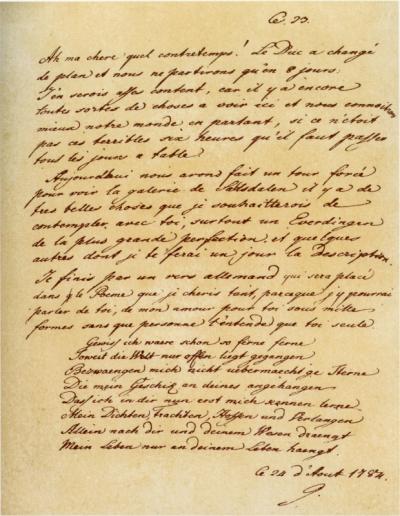 Ce 23.
Ah ma chere quel contretemps! Le Duc a changé
de plan et nous ne partirons qu'en 8 jours.
J'en serois asses content, car il y a encore
toutes sortes de choses a voir ici et nous connoitrons
mieux notre monde en partant, si ce n'étoit
pas ces terribles six heures qu'il faut passer
tous les jours a table.
Aujourdhui nous avons fait un tour forcé
pour voir la galerie de Salsdalen il y a de
tres belles choses que je souhaitterois de
contempler avec toi, surtout un Everdingen
de la plus grande perfection, et quelques
autres dont je te ferai un jour la Description.
Je finis par un vers allemand qui sera placé
dans le Poeme que je cheris tant, parceque j'y pourrai
parler de toi, de mon amour pour toi sous mille
formes sans que personne l'entende que toi seule.
Gewiss ich waere schon so ferne ferne
Soweit die Welt nur offen liegt gegangen
Bezwaengen mich nicht uebermaechtge Sterne
Die mein Geschick an deines angehangen
Dass ich in dir nun erst mich kennen lerne
Mein Dichten, Trachten, Hoffen und Verlangen
Allein nach dir und deinem Wesen draengt
Mein Leben nur an deinem Leben haengt.
ce 24 d'Aout 1784.
G.